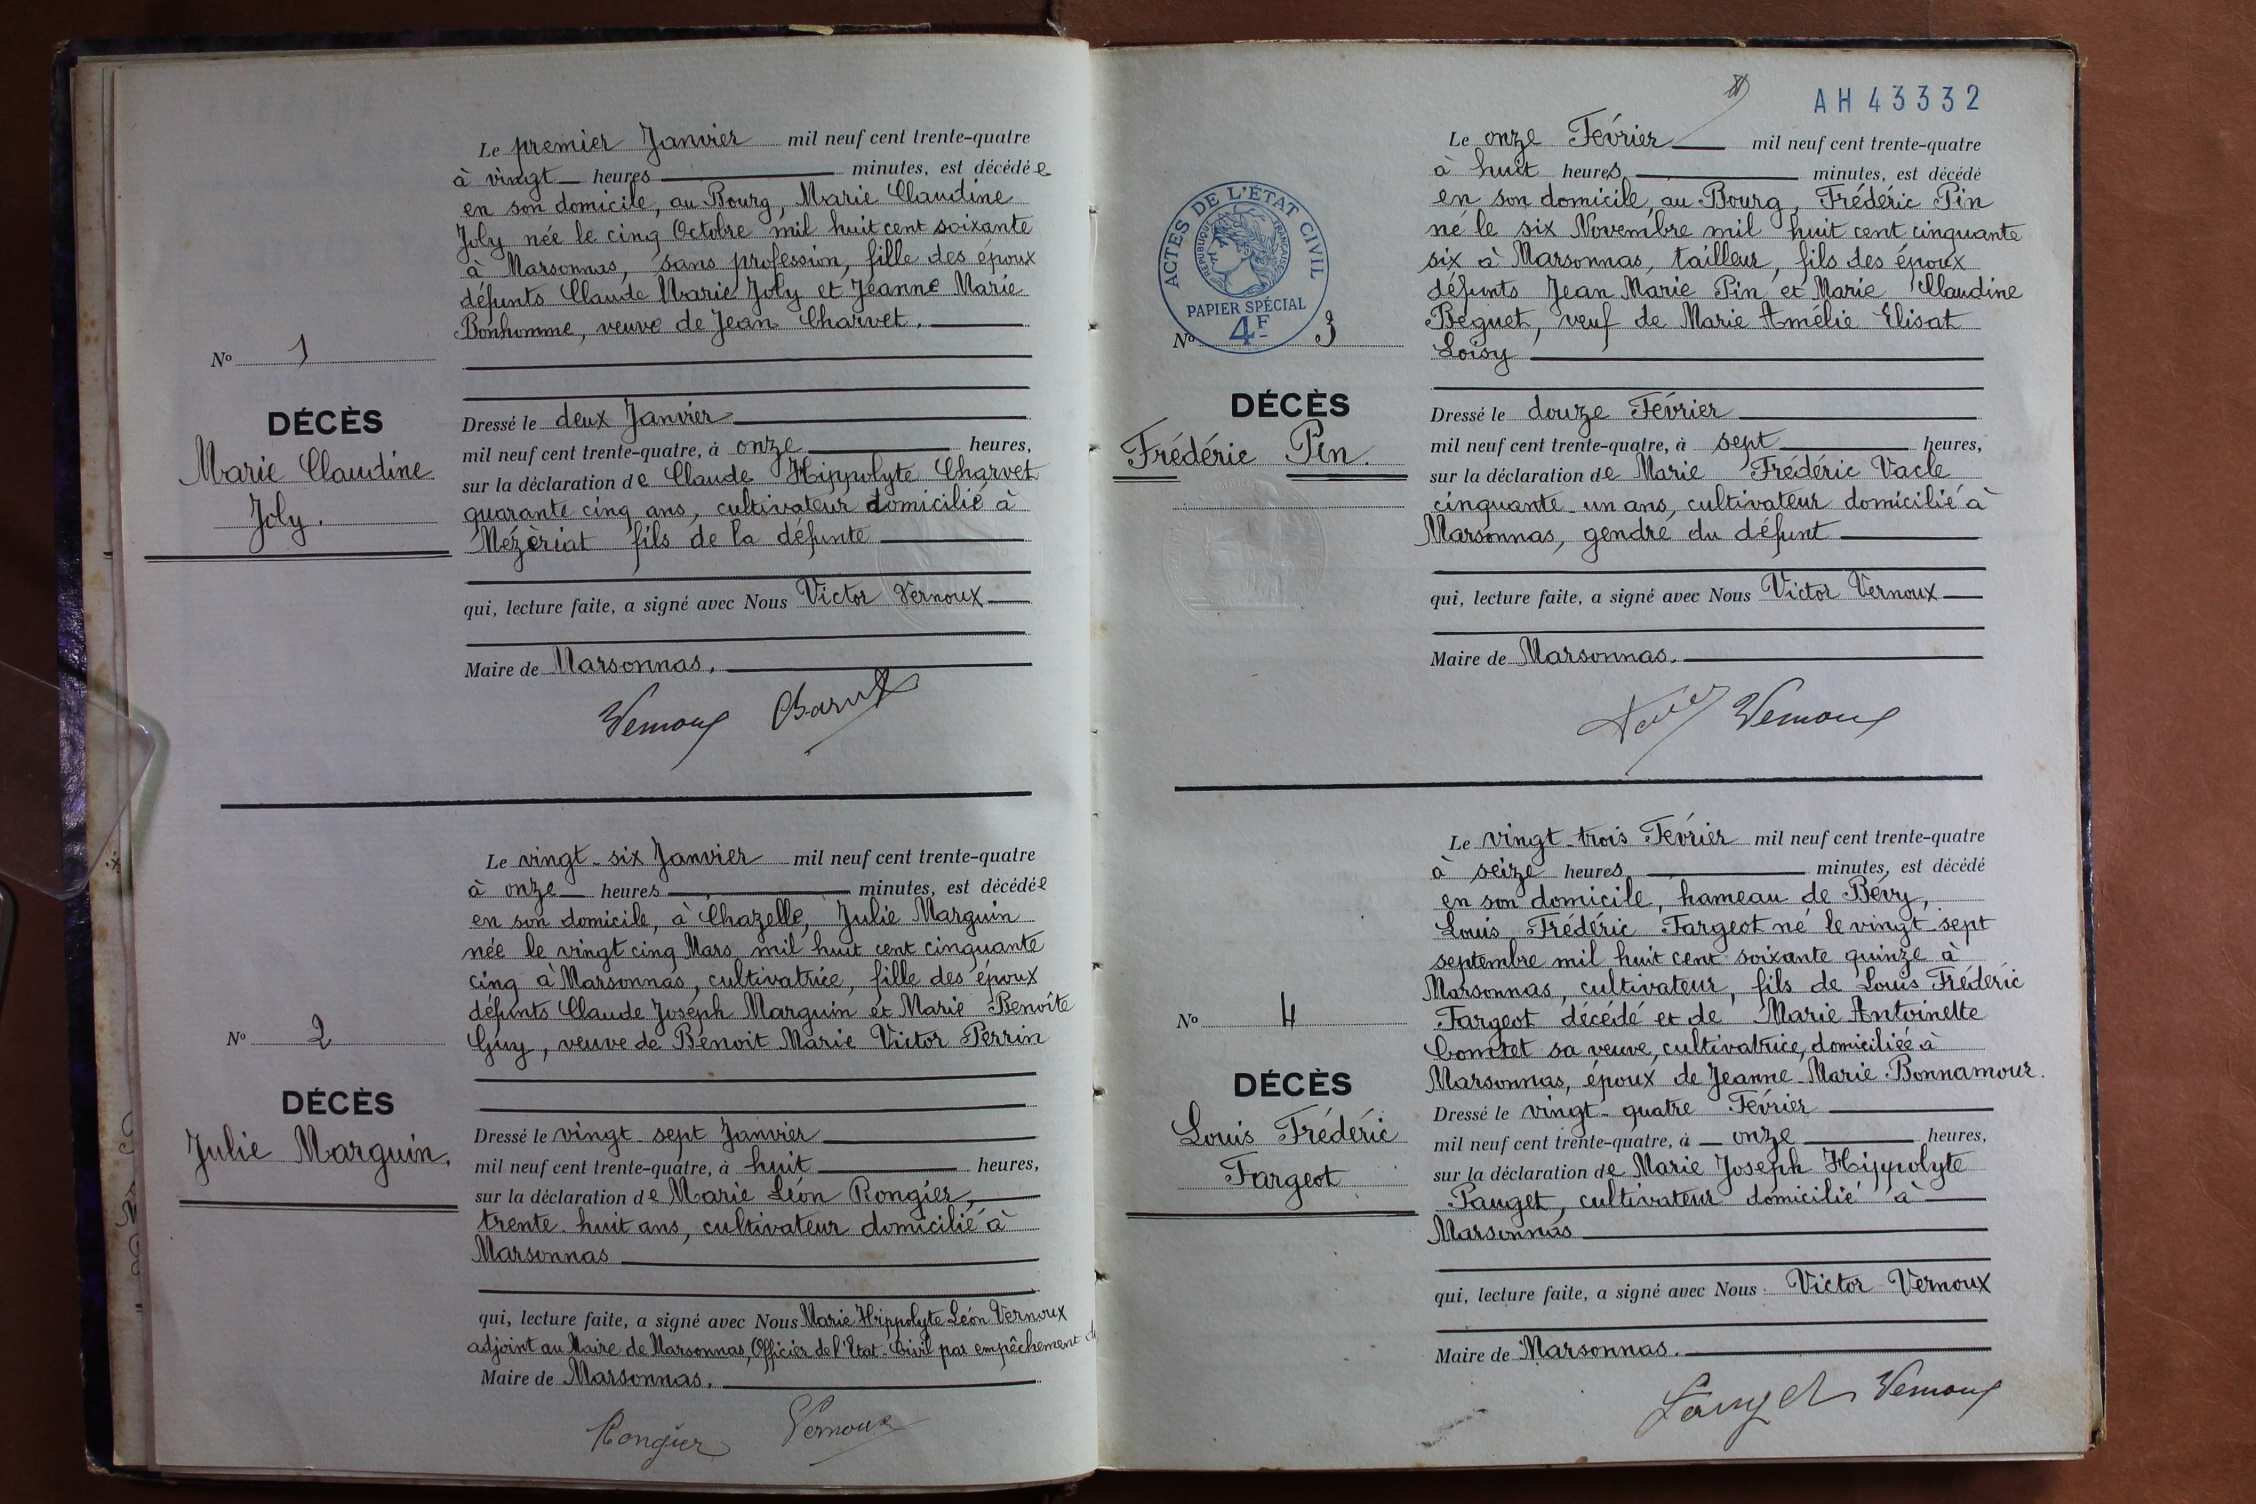 Le premier Janvier mil neuf cent trente-quatre
à vingt heures minutes, est décédée
en son domicile, au Bourg, Marie Claudine
Joly née le cinq Octobre mil huit cent soixante
à Marsonnas, sans profession, fille des époux
défunts Claude Marie Joly et Jeanne Marie
Bonhomme, veuve de Jean Charvet.
No 1
DÉCÈS
Marie Claudine
Joly.
Dressé le deux Janvier
mil neuf cent trente-quatre, à onze heures,
sur la déclaration de Claude Hippolyte Charvet
quarante cinq ans, cultivateur domicilié à
Mézériat fils de la défunte
qui, lecture faite, a signé avec Nous Victor Vernoux
Maire de Marsonnas.
Vernoux Charvet
Le vingt-six Janvier mil neuf cent trente-quatre
à onze heures minutes, est décédée
en son domicile, à Chazelle, Julie Marguin
née le vingt cinq Mars mil huit cent cinquante
cinq à Marsonnas, cultivatrice, fille des époux
défunts Claude Joseph Marguin et Marie Benoîte
Guy, veuve de Benoit Marie Victor Perrin
No 2
DÉCÈS
Julie Marguin.
Dressé le vingt-sept Janvier
mil neuf cent trente-quatre, à huit heures,
sur la déclaration de Marie Léon Rongier,
trente-huit ans, cultivateur domicilié à
Marsonnas
qui, lecture faite, a signé avec Nous Marie Hippolyte Léon Vernoux
adjoint au Maire de Marsonnas, Officier de l'Etat-Civil par empêchement du
Maire de Marsonnas.
Rongier Vernoux
AH 43332
Le onze Février mil neuf cent trente-quatre
à huit heures minutes, est décédé
en son domicile, au Bourg, Frédéric Pin
né le six Novembre mil huit cent cinquante
six à Marsonnas, tailleur, fils des époux
défunts Jean Marie Pin et Marie Claudine
Béguet, veuf de Marie Amélie Elisat
Loisy
ACTES DE L'ÉTAT CIVIL
RÉPUBLIQUE FRANÇAISE
PAPIER SPÉCIAL
4F
No 3
DÉCÈS
Frédéric Pin.
Dressé le douze Février
mil neuf cent trente-quatre, à sept heures,
sur la déclaration de Marie Frédéric Vacle
cinquante-un ans, cultivateur domicilié à
Marsonnas, gendre du défunt
qui, lecture faite, a signé avec Nous Victor Vernoux
Maire de Marsonnas.
Vernoux
Le vingt-trois Février mil neuf cent trente-quatre
à seize heures minutes, est décédé
en son domicile, hameau de Bévy,
Louis Frédéric Fargeot né le vingt-sept
septembre mil huit cent soixante quinze à
Marsonnas, cultivateur, fils de Louis Frédéric
Fargeot décédé et de Marie Antoinette
Comtet sa veuve, cultivatrice, domiciliée à
Marsonnas, époux de Jeanne-Marie Bonnamour.
No 4
DÉCÈS
Louis Frédéric
Fargeot
Dressé le vingt-quatre Février
mil neuf cent trente-quatre, à onze heures,
sur la déclaration de Marie Joseph Hippolyte
Pauget, cultivateur domicilié à
Marsonnas
qui, lecture faite, a signé avec Nous Victor Vernoux
Maire de Marsonnas.
Pauget Vernoux